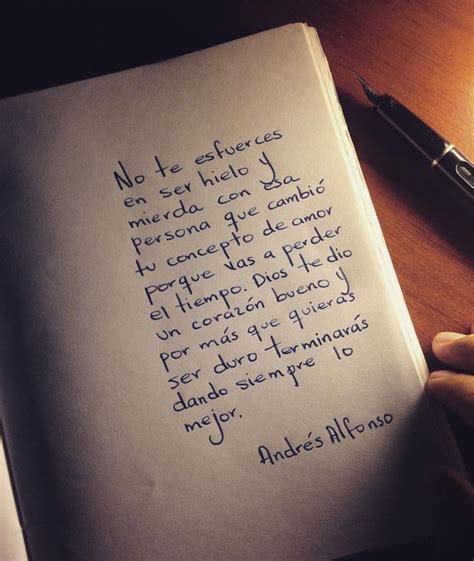 No te esfuerces
en ser hielo y
mierda con esa
persona que cambió
tu concepto de amor
porque vas a perder
el tiempo. Dios te dio
un corazón bueno y
por más que quieras
ser duro terminarás
dando siempre lo
mejor.
Andrés Alfonso